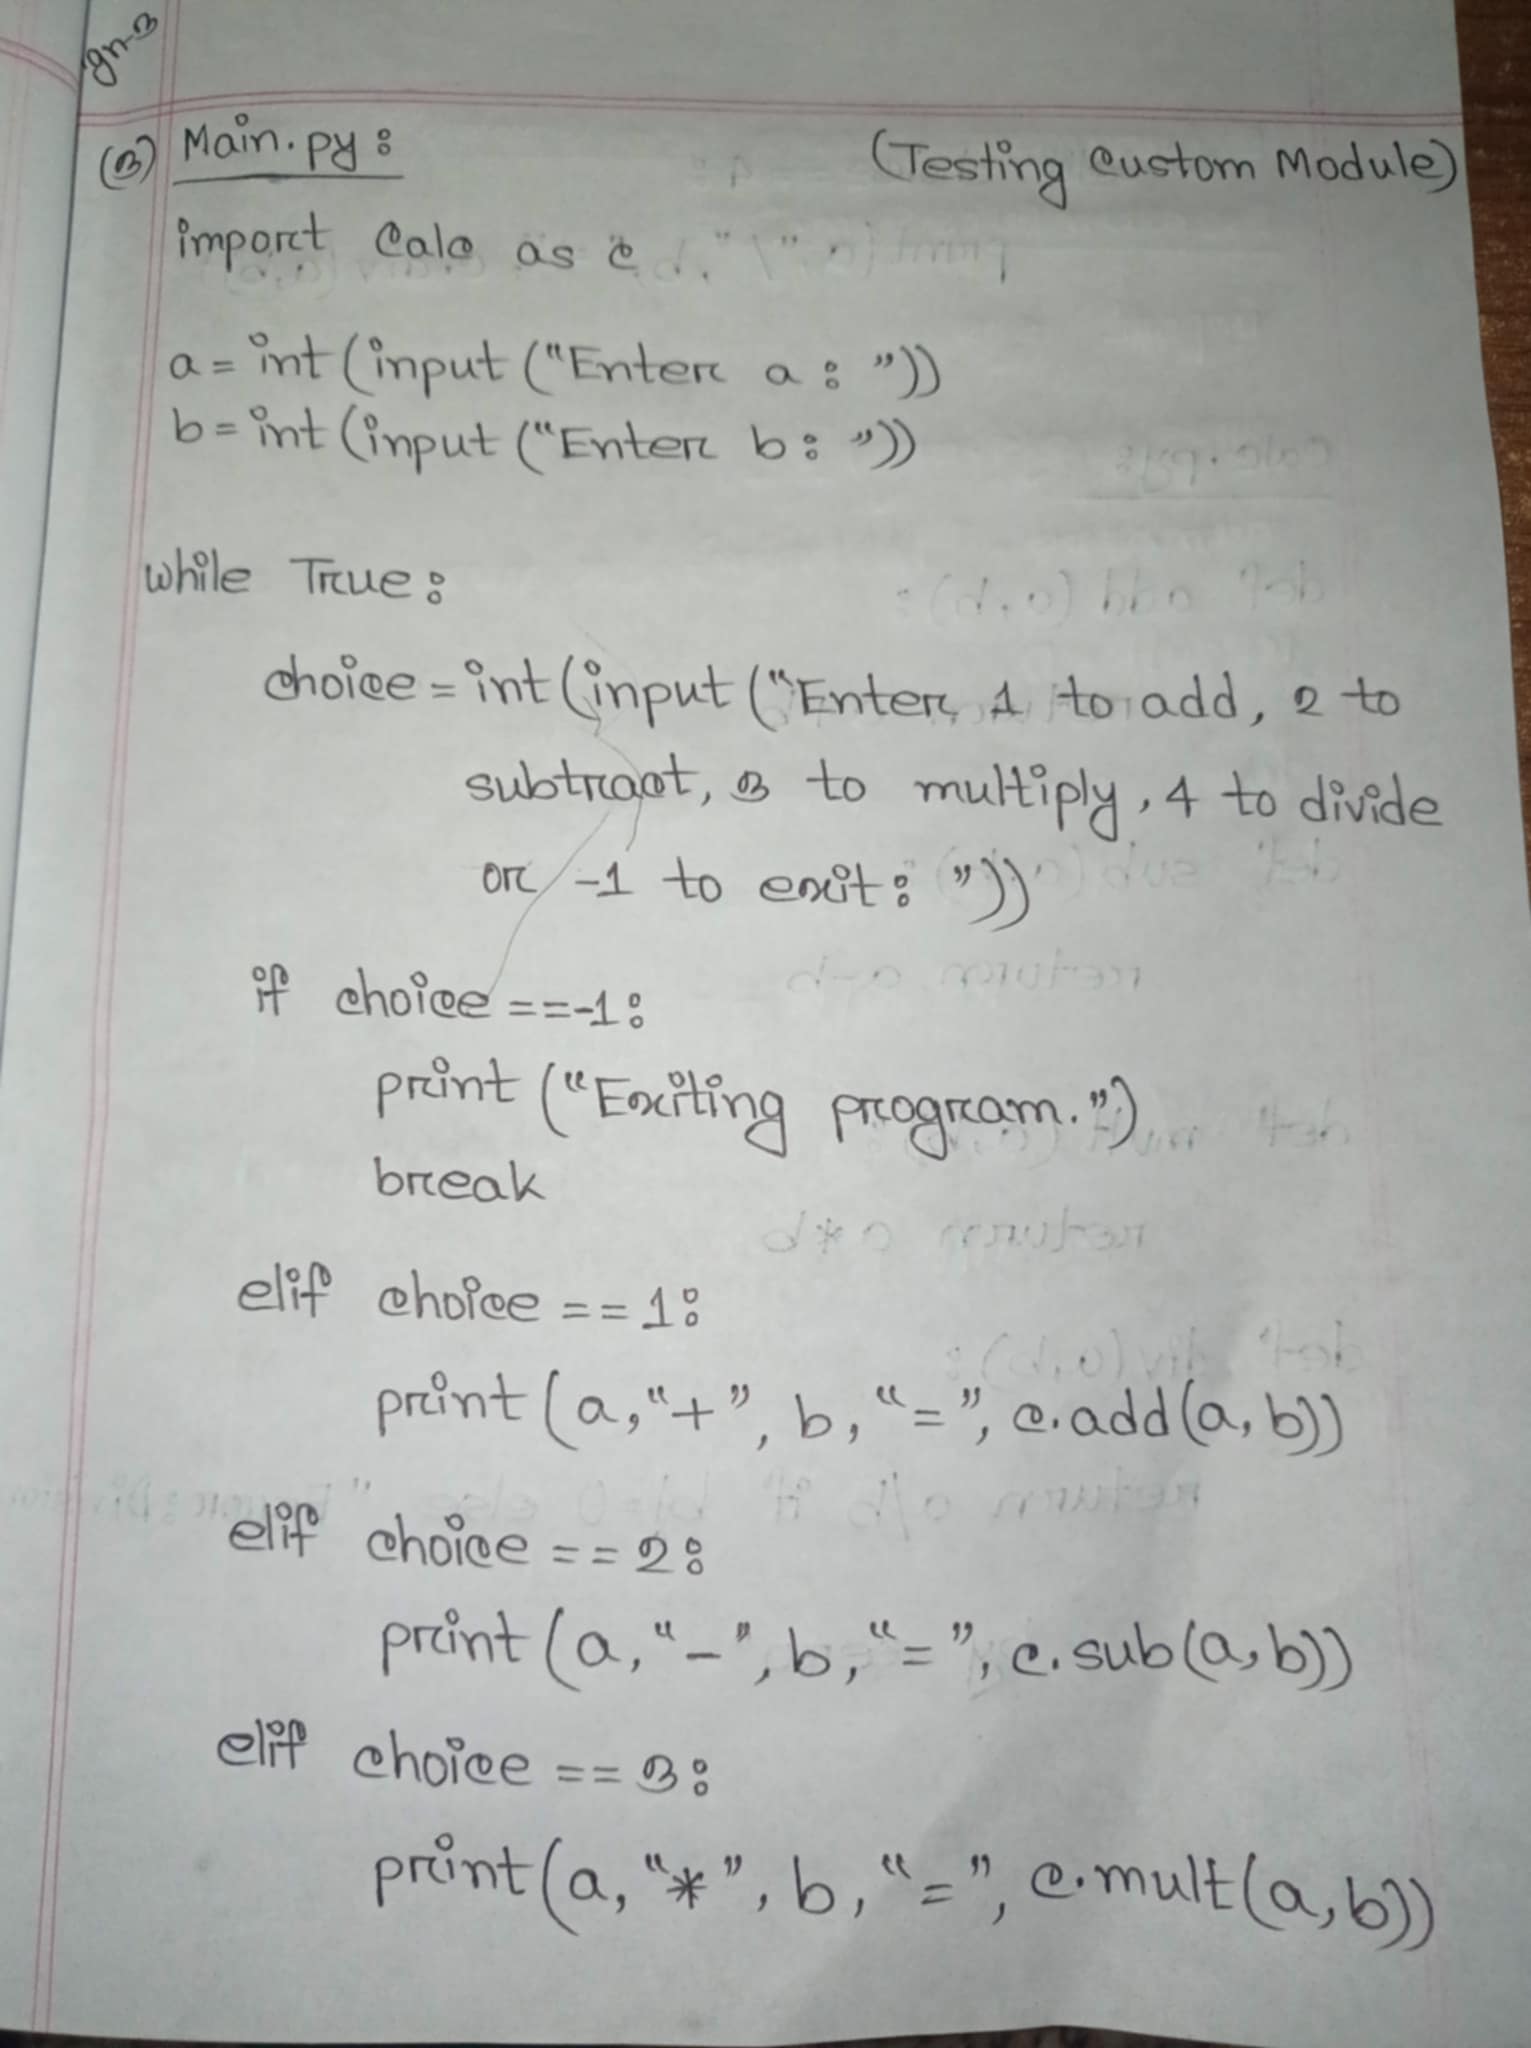 (3) Main.py: (Testing Custom Module)
import Calc as c
a = int(input("Enter a: "))
b = int(input("Enter b: "))
while True:
choice = int(input("Enter 1 to add, 2 to
subtract, 3 to multiply, 4 to divide
or -1 to exit: "))
if choice ==-1:
print("Exiting program.")
break
elif choice == 1:
print(a,"+", b, "=", c.add(a, b))
elif choice == 2:
print(a, "-", b, "=", c.sub(a, b))
elif choice == 3:
print(a, "*", b, "=", c.mult(a, b))